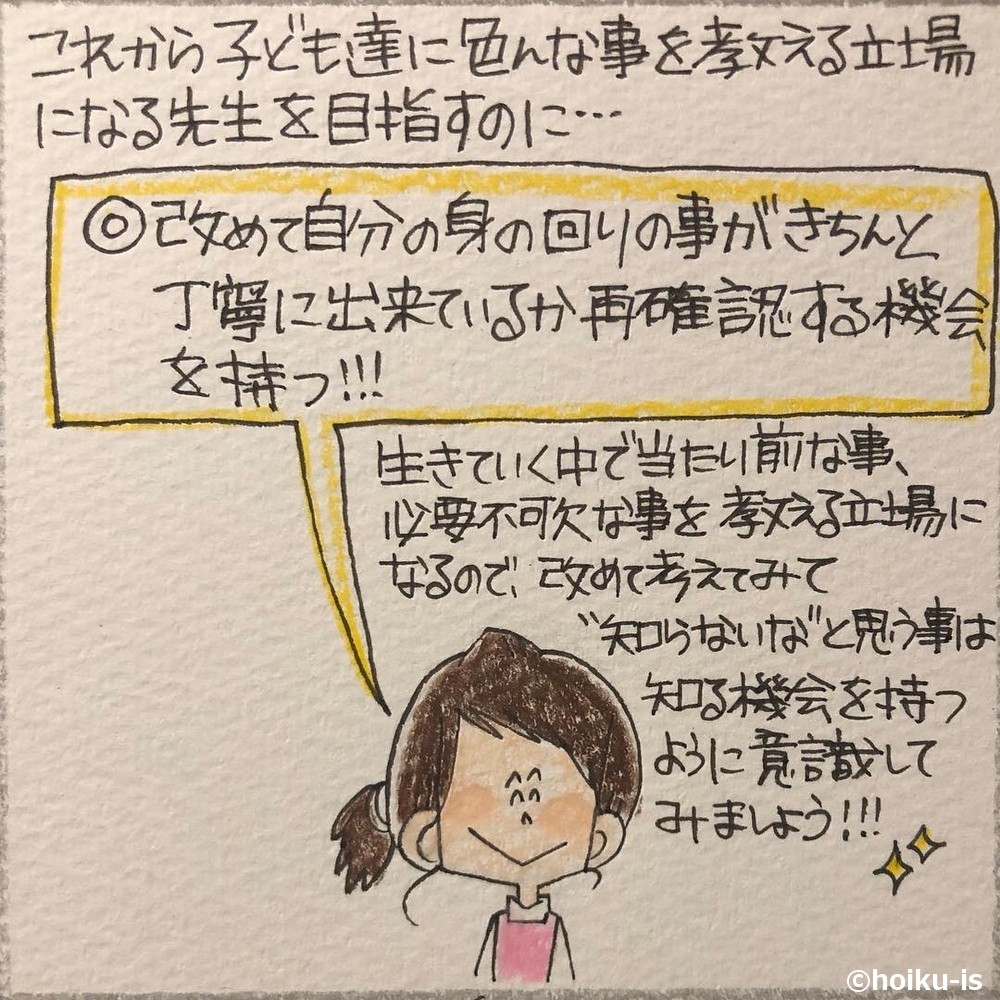 これから子ども達に色んな事を教える立場
になる先生を目指すのに…
◎改めて自分の身の回りの事がきちんと
丁寧に出来ているか再確認する機会
を持つ!!!
生きていく中で当たり前な事、
必要不可欠な事を教える立場に
なるので、改めて考えてみて
"知らないな"と思う事は
知る機会を持つ
ように意識して
みましょう!!!
©hoiku-is